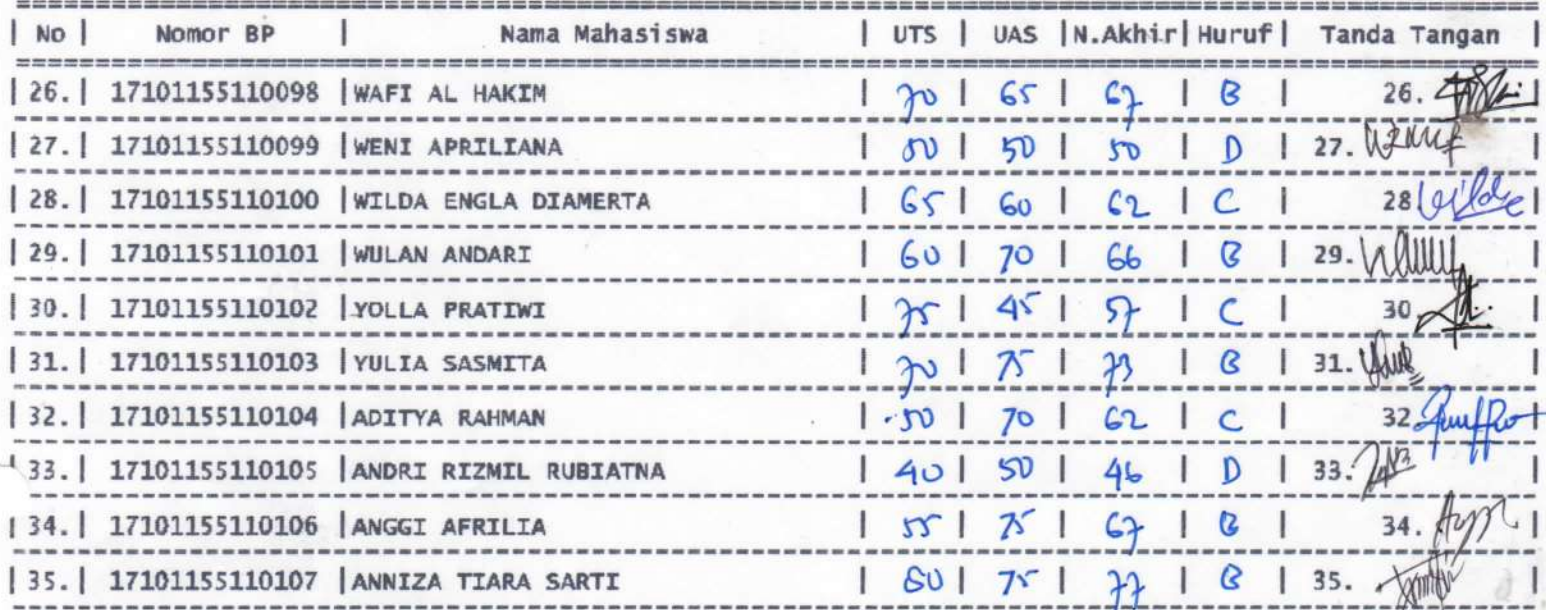 | No | Nomor BP | Nama Mahasiswa | UTS | UAS |N.Akhir| Huruf| Tanda Tangan |
| 26.| 17101155110098 |WAFI AL HAKIM | 70 | 65 | 67 | B | 26. |
| 27.| 17101155110099 |WENI APRILIANA | 50 | 50 | 50 | D | 27. |
| 28.| 17101155110100 |WILDA ENGLA DIAMERTA | 65 | 60 | 62 | C | 28 Wilda |
| 29.| 17101155110101 |WULAN ANDARI | 60 | 70 | 66 | B | 29. |
| 30.| 17101155110102 |YOLLA PRATIWI | 75 | 45 | 57 | C | 30 |
| 31.| 17101155110103 |YULIA SASMITA | 70 | 75 | 73 | B | 31. |
| 32.| 17101155110104 |ADITYA RAHMAN | 50 | 70 | 62 | C | 32 |
| 33.| 17101155110105 |ANDRI RIZMIL RUBIATNA | 40 | 50 | 46 | D | 33. |
| 34.| 17101155110106 |ANGGI AFRILIA | 55 | 75 | 67 | B | 34. |
| 35.| 17101155110107 |ANNIZA TIARA SARTI | 80 | 75 | 77 | B | 35. |